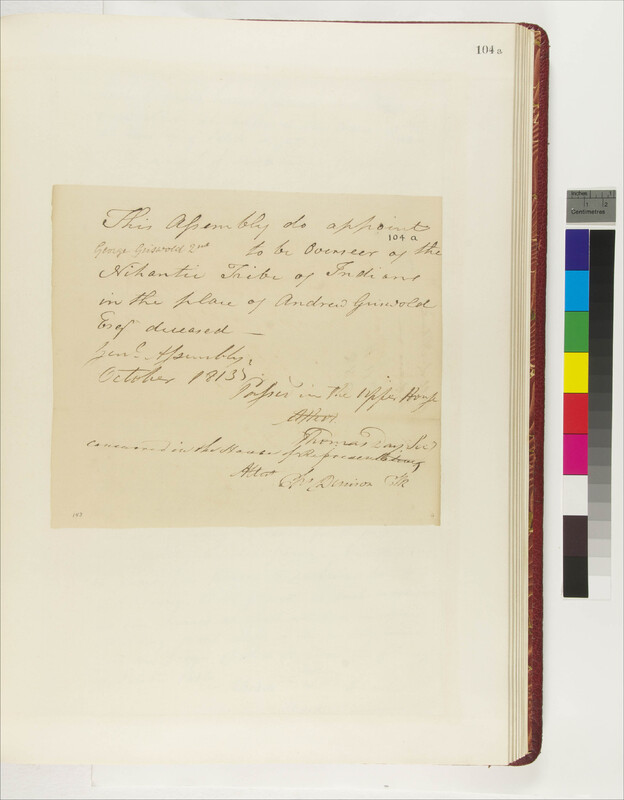 104a
This Assembly do appoint
104 a
George Griswold 2nd to be Overseer of the
Nihantic Tribe of Indians
in the place of Andrew Griswold
Esqr deceased —
Genl Assembly,
October 1813
Passed in the Upper House
Attest.
Thomas Day Secy
concurred in the House of Representatives
Attest
Denison Clk
Inches 1 2
Centimetres